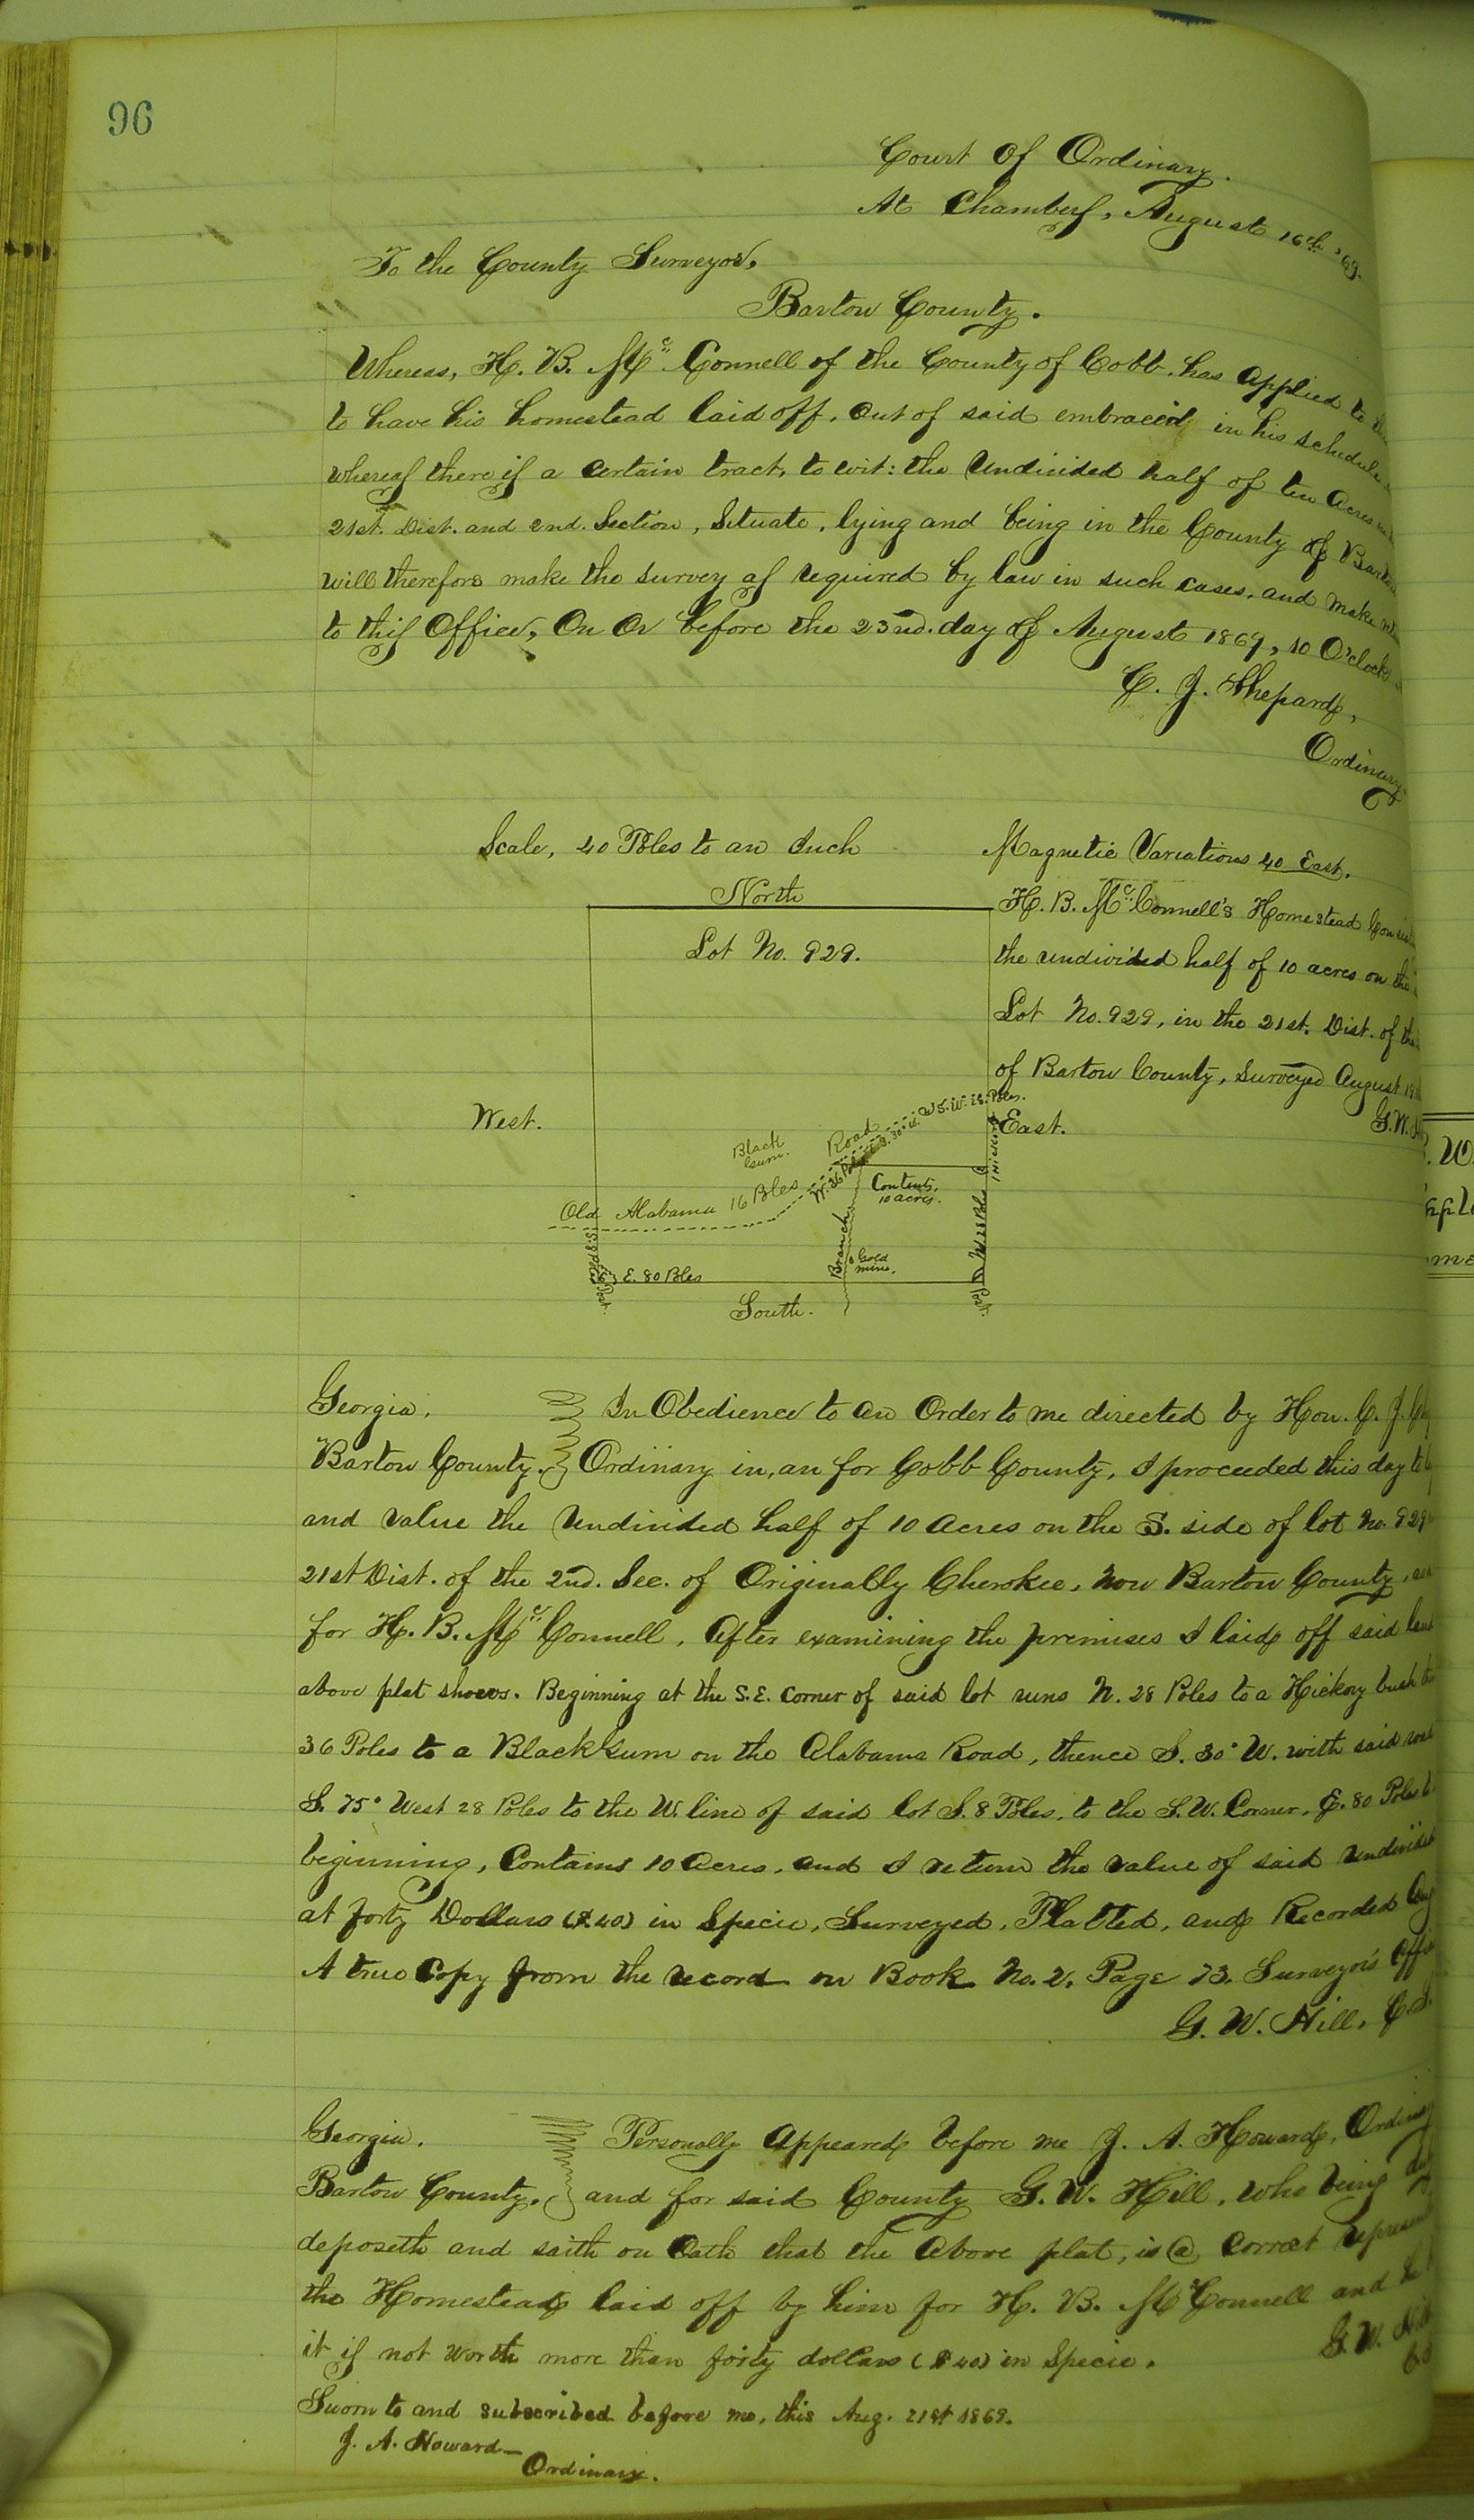 96
Court Of Ordinary.
At Chambers, August 16th, '69.
To the County Surveyor,
Bartow County.
Whereas, H. B. McConnell of the County of Cobb, has applied to
to have his homestead laid off, out of said embraced in his schedule
whereof there is a certain tract, to wit: the undivided half of ten acres
21st. Dist. and 2nd. Section, Situate, lying and being in the County of Bartow
will therefore make the survey as required by law in such cases, and make
to this Office, On Or before the 23rd. day of August 1869, 10 O'clock
C. J. Shepard,
Ordinary
Scale, 40 Poles to an Inch
Magnetic Variations 40 East.
North
H. B. McConnell's Homestead
Lot No. 929.
the undivided half of 10 acres on the
Lot No. 929, in the 21st. Dist. of the
of Bartow County, Surveyed August 19
G. W.
West.
East.
Black Gum.
Road
S. 30° W.
W. 28 Poles.
W. 36 Poles
Contents, 10 acres.
Old Alabama 16 Poles
Branch
Gold mine.
N. 28 Poles
E. 80 Poles
South.
Georgia, In Obedience to an Order to me directed by Hon. C. J.
Bartow County. Ordinary in, an for Cobb County, I proceeded this day to
and value the Undivided half of 10 Acres on the S. side of lot No. 929
21st Dist. of the 2nd. Sec. of Originally Cherokee, Now Bartow County,
for H. B. McConnell, After examining the premises I laid off said land
above plat shows. Beginning at the S.E. Corner of said lot runs N. 28 Poles to a Hickory bush
36 Poles to a Black Gum on the Alabama Road, thence S. 30° W. with said road
S. 75° West 28 Poles to the W. line of said lot S. 8 Poles, to the S.W. Corner, E. 80 Poles
beginning, Contains 10 Acres, and I return the value of said undivided
at forty Dollars ($40) in Specie, Surveyed, Platted, and Recorded
A true Copy from the record on Book No. 2, Page 73. Surveyor's
G. W. Hill, C.S.
Georgia. Personally Appeared before me J. A. Howard, Ordinary
Bartow County. and for said County G. W. Hill, who being
deposeth and saith on Oath that the above plat, is a correct
the Homestead laid off by him for H. B. McConnell and
it is not worth more than forty dollars ($40) in Specie.
G. W.
Sworn to and subscribed before me, this Aug. 21st 1869.
J. A. Howard
Ordinary.